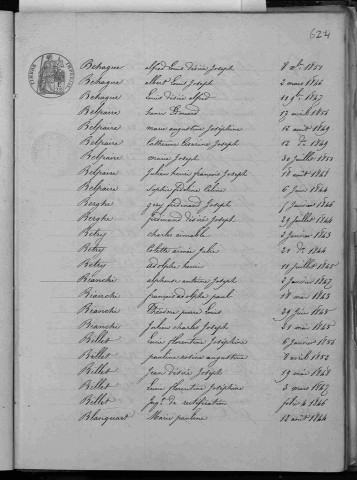 624
Behague alfred Louis désiré Joseph 8 8bre 1851
Behague albert Louis Joseph 2 mars 1846
Behague Louis désiré alfred 11 9bre 1847
Belpaire henri Edouard 17 avril 1855
Belpaire marie augustine Joséphine 15 août 1849
Belpaire Catherine 12 Xbre 1849
Belpaire marie Joseph 30 juillet 1852
Belpaire Julien henri françois Joseph 18 août 1861
Belpaire Sophie Céline 6 juin 1844
Berghe ferdinand Joseph 5 janvier 1846
Berghe fernand désiré Joseph 29 juillet 1844
Betry charles aimable 2 janvier 1843
Betry Colette aimée Julie 21 Xbre 1844
Betry adolphe henri 11 juillet 1845
Bianche alphonse antoine Joseph 2 janvier 1847
Bianche françois adolphe paul 18 mai 1843
Bianche pierre Louis 29 juin 1845
Bianche Julien charles Joseph 21 mai 1845
Billet Louise florentine Joséphine 6 janvier 1855
Billet pauline augustine 8 avril 1852
Billet Jean désiré Joseph 19 mai 1848
Billet Louise florentine Joséphine 3 mars 1847
Billet Jugt de rectification 1846
Blanquart Marie pauline 12 août 1844